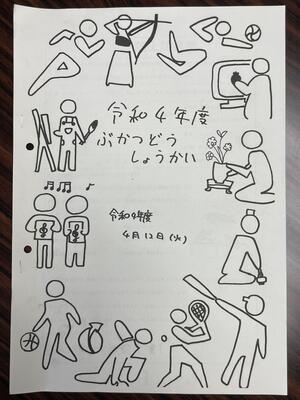 令和4年度
ぶかつどう
しょうかい
令和4年度
4月12日(火)